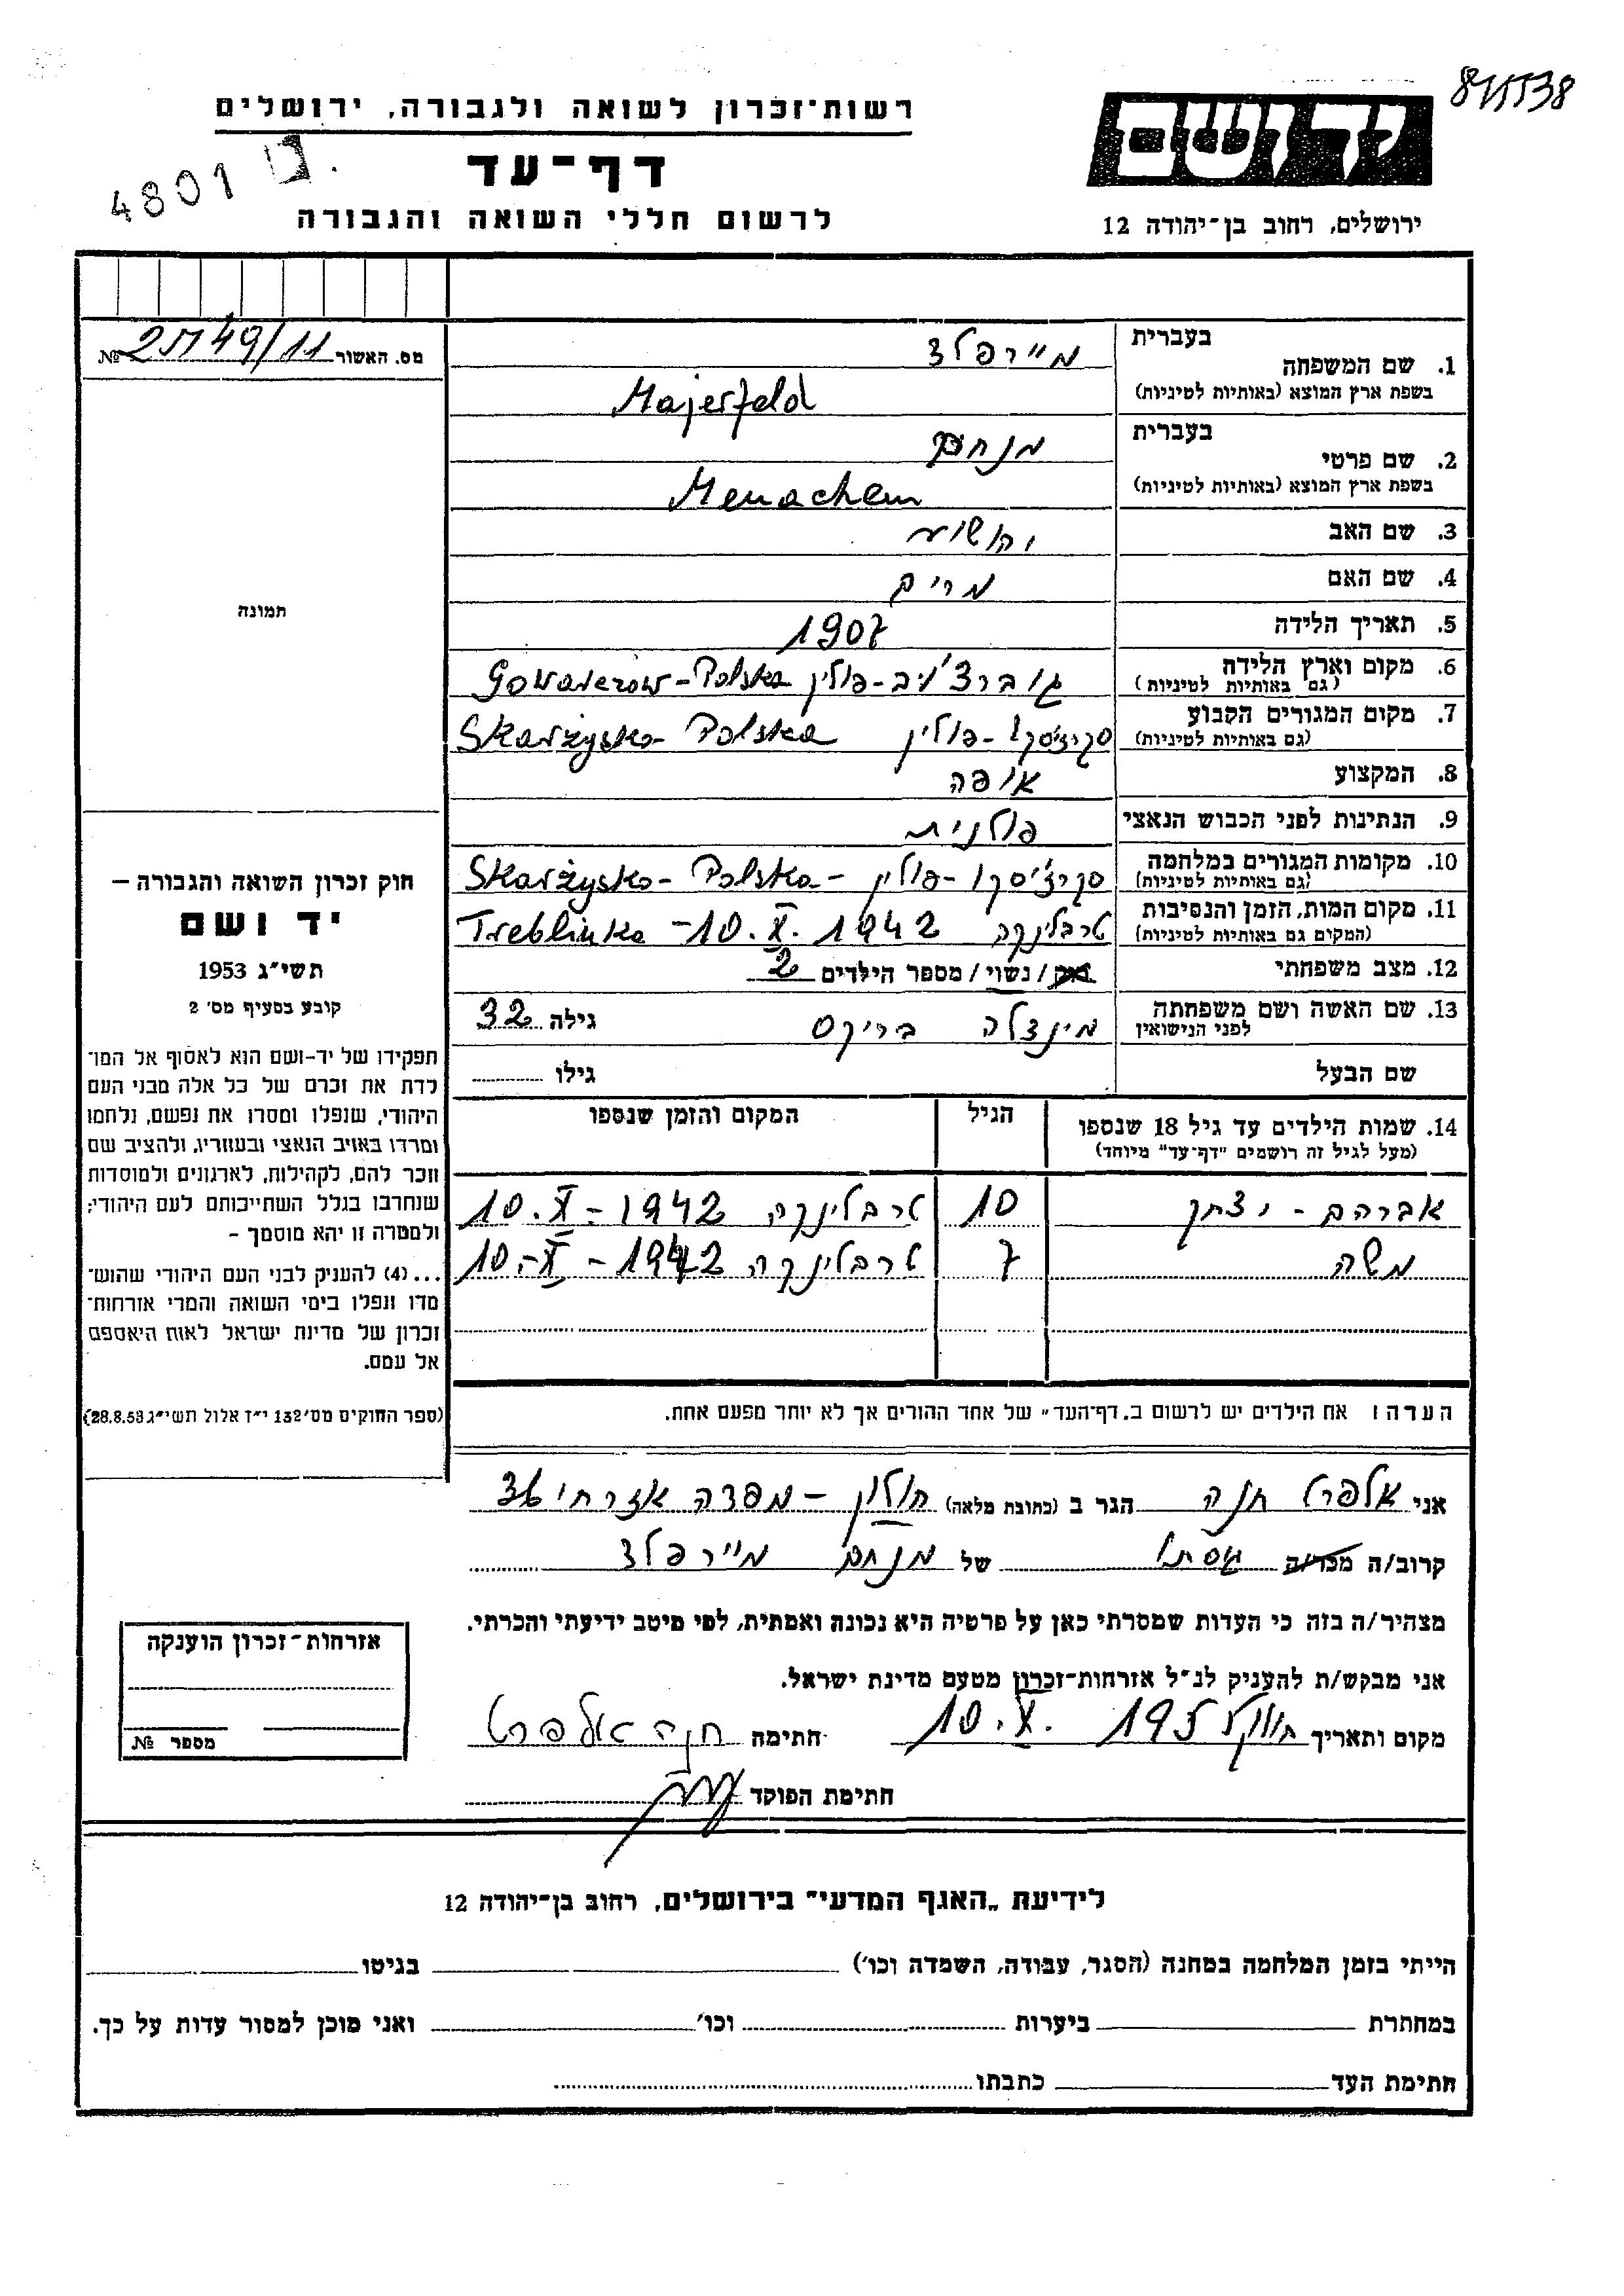 רשות־זכרון לשואה ולגבורה, ירושלים
דף־עד
לרשום חללי השואה והגבורה
ידושם
ירושלים, רחוב בן־יהודה 12
4801
מס. האשור №
1. שם המשפחה בעברית מיירפלד
בשפת ארץ המוצא (באותיות לטיניות) Majerfeld
2. שם פרטי בעברית מנחם
בשפת ארץ המוצא (באותיות לטיניות) Menachem
3. שם האב יהושע
4. שם האם מרים
5. תאריך הלידה 1907
6. מקום וארץ הלידה (גם באותיות לטיניות) גוברצ'וב-פולין Gowarczow-Polska
7. מקום המגורים הקבוע (גם באותיות לטיניות) סקרז'סקו-פולין Skarżysko-Polska
8. המקצוע אופה
9. הנתינות לפני הכבוש הנאצי פולנית
10. מקומות המגורים במלחמה (גם באותיות לטיניות) סקרז'סקו-פולין - Skarżysko-Polska
11. מקום המות, הזמן והנסיבות (המקום גם באותיות לטיניות) טרבלינקה Treblinka -10.X.1942
12. מצב משפחתי רווק / נשוי / מספר הילדים 2
13. שם האשה ושם משפחתה לפני הנישואין מינצלה בריקס גילה 32
שם הבעל גילו
14. שמות הילדים עד גיל 18 שנספו הגיל המקום והזמן שנספו
(מעל לגיל זה רושמים "דף־עד" מיוחד)
אברהם - יצחק 10 טרבלינקה 10.X-1942
משה 7 טרבלינקה 10-X-1942
הערה: את הילדים יש לרשום ב„דף־העד" של אחד ההורים אך לא יותר מפעם אחת.
תמונה
חוק זכרון השואה והגבורה —
יד ושם
תשי"ג 1953
קובע בסעיף מס' 2
תפקידו של יד-ושם הוא לאסוף אל המו־
לדת את זכרם של כל אלה מבני העם
היהודי, שנפלו ומסרו את נפשם, נלחמו
ומרדו באויב הנאצי ובעוזריו, ולהציב שם
וזכר להם, לקהילות, לארגונים ולמוסדות
שנחרבו בגלל השתייכותם לעם היהודי;
ולמטרה זו יהא מוסמך –
...(4) להעניק לבני העם היהודי שהוש־
מדו ונפלו בימי השואה והמרי אזרחות־
זכרון של מדינת ישראל לאות היאספם
אל עמם.
(ספר החוקים מס' 132 י"ז אלול תשי"ג 28.8.53)
אני אלפרט חנה הגר ב (כתובת מלאה) חולון - מפדה אזרחי 36
קרוב/ה מכר/ה גיסתו של מנחם מיירפלד
מצהיר/ה בזה כי העדות שמסרתי כאן על פרטיה היא נכונה ואמתית, לפי מיטב ידיעתי והכרתי.
אני מבקש/ת להעניק לנ"ל אזרחות־זכרון מטעם מדינת ישראל.
מקום ותאריך חולון 10.X.195 חתימה חנה אלפרט
חתימת הפוקד
אזרחות־זכרון הוענקה
מספר №
לידיעת „האגף המדעי" בירושלים, רחוב בן־יהודה 12
הייתי בזמן המלחמה במחנה (הסגר, עבודה, השמדה וכו') בגיטו
במחתרת ביערות וכו' ואני מוכן למסור עדות על כך.
חתימת העד כתבתו